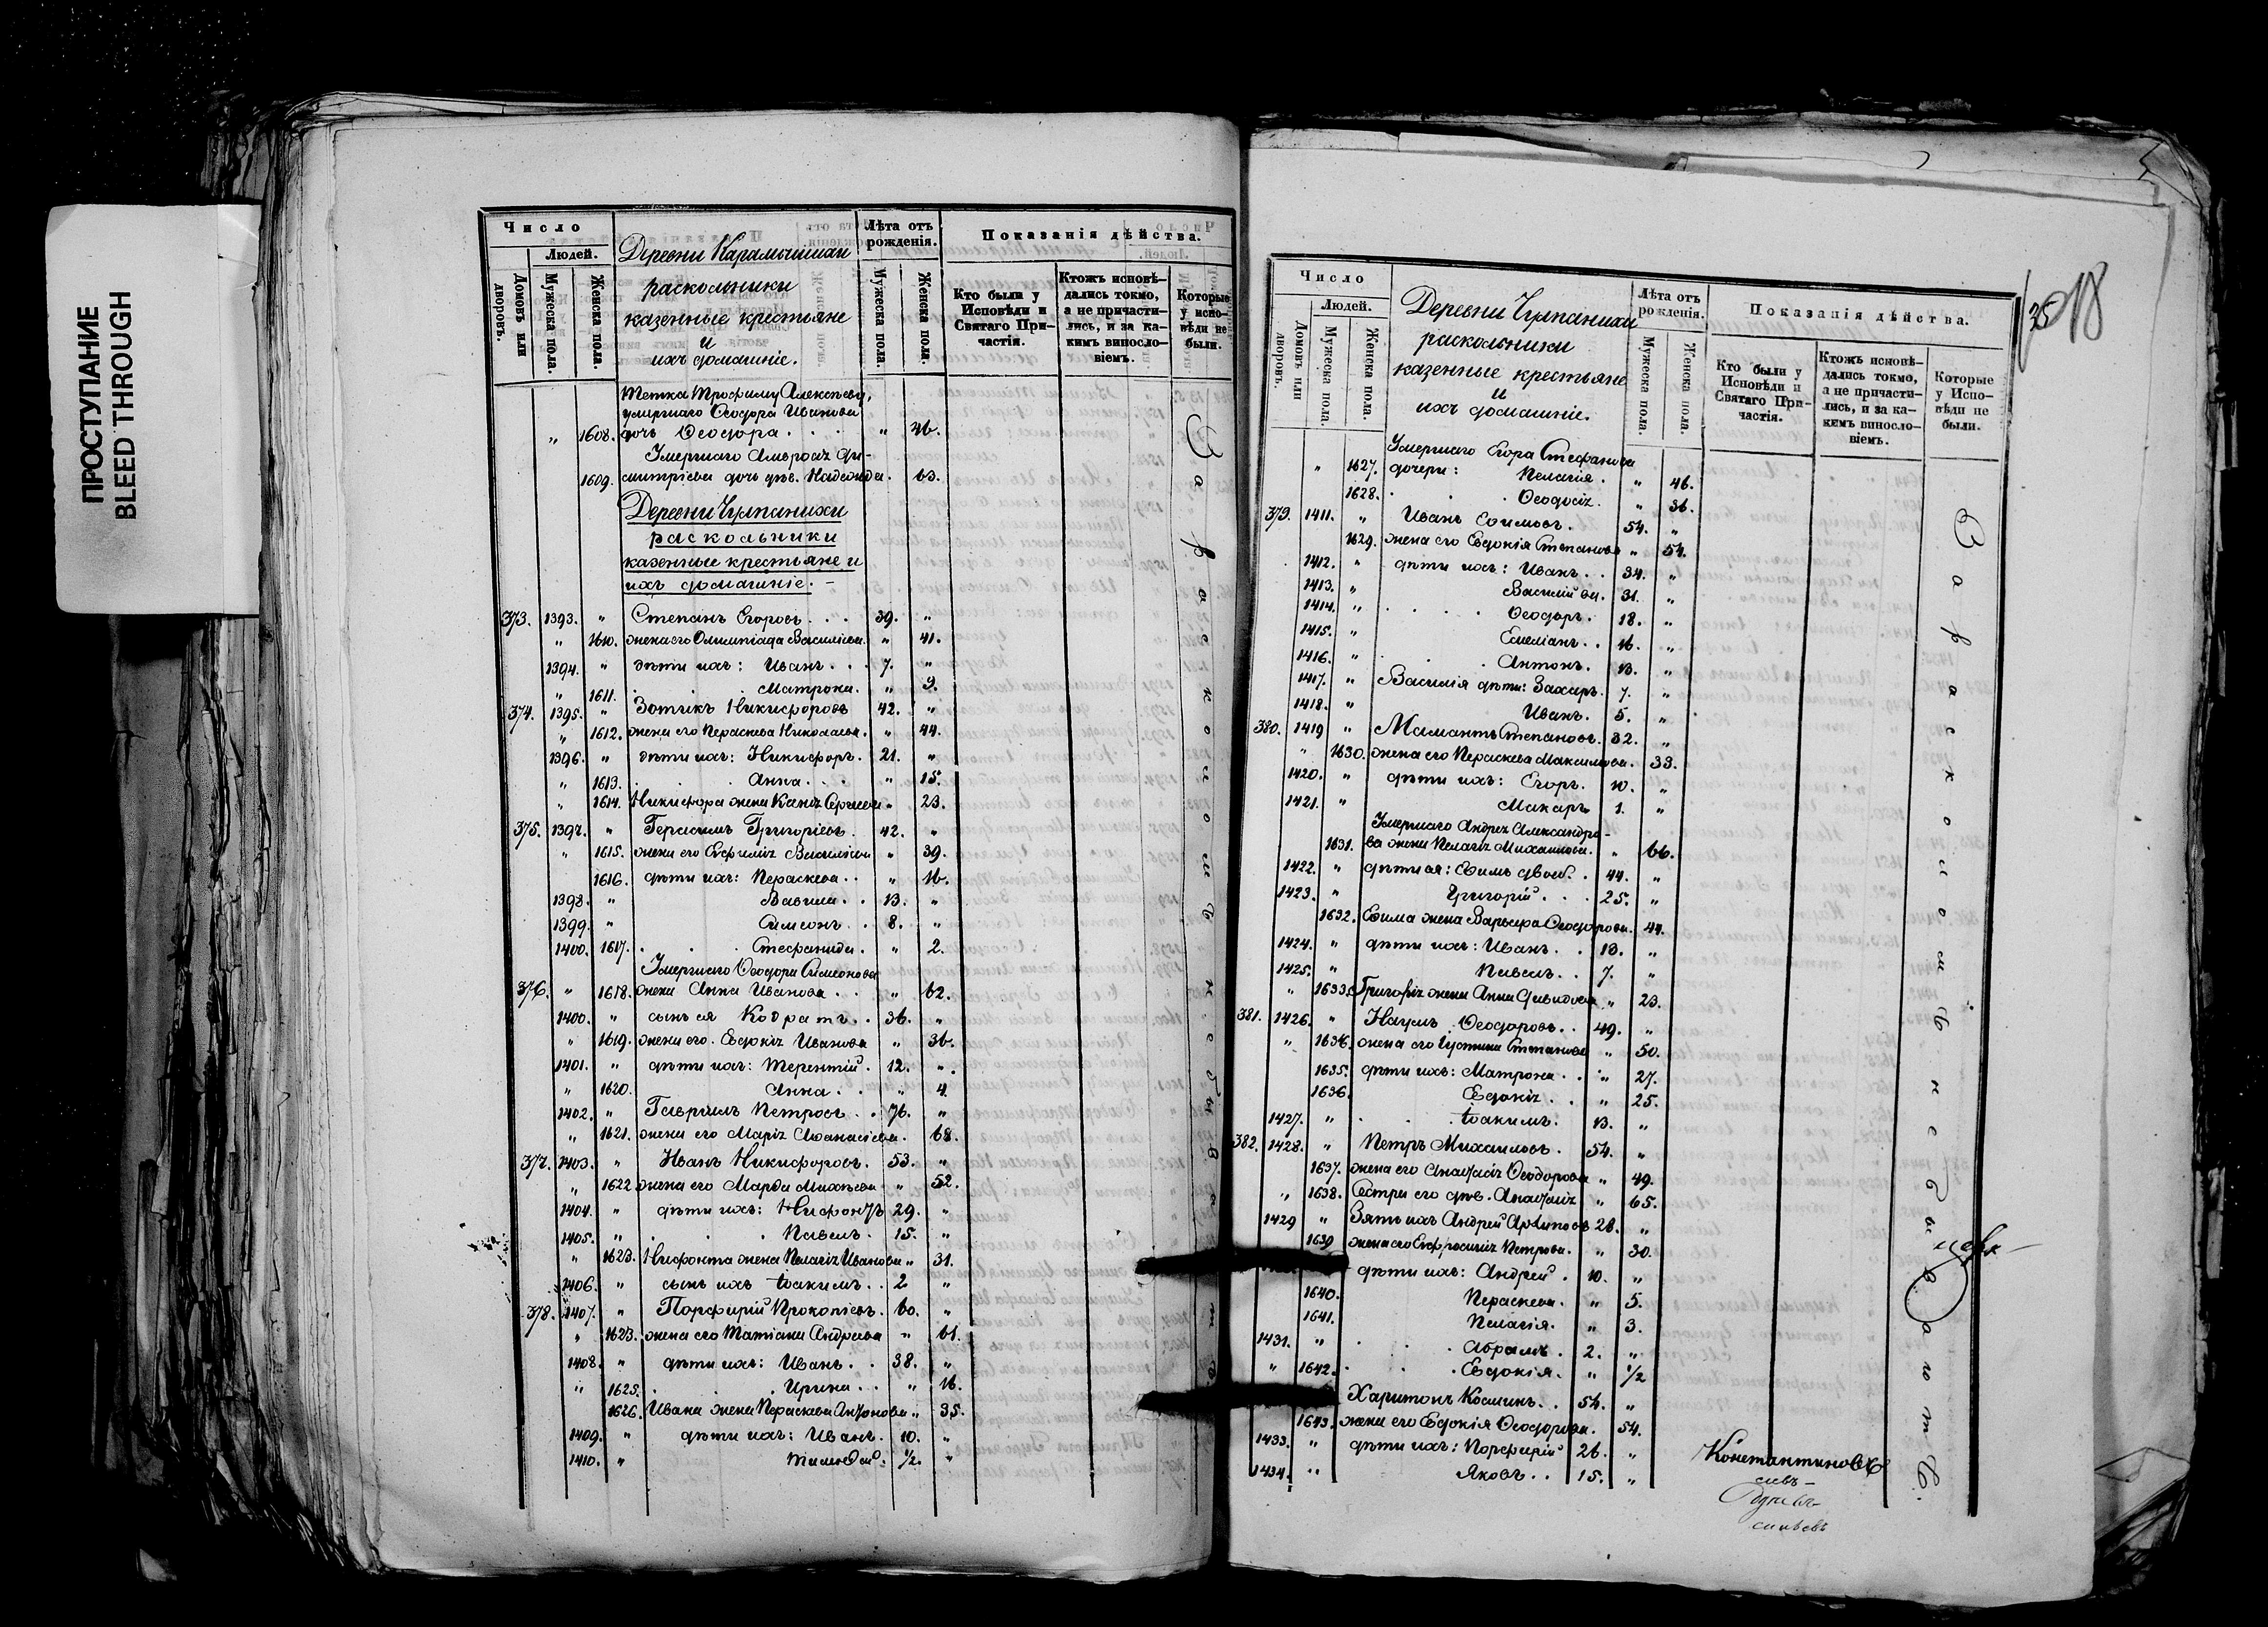 ПРОСТУПАНИЕ
BLEED THROUGH
Число
Людей.
Домовъ или дворовъ.
Мужеска пола.
Женска пола.
Деревни Карамышихи
раскольники
казенные крестьяне
и
ихъ домашніе.
Лѣта отъ рожденія.
Мужеска пола.
Женска пола.
Показанія дѣйства.
Кто были у Исповѣди и Святаго Причастія.
Ктожъ исповѣдались токмо, а не причастились, и за какимъ винословіемъ.
Которые у исповѣди не были.
Тетка Трофиму Алексѣеву,
умершаго Ѳеодора Иванова
„ 1608. дочь Ѳеодора . . . „ 46.
Умершаго Амвросія Ди-
1609. митріева дочь дѣв. Надежда. 63.
Деревни Чурпанихи
раскольники
казенные крестьяне и
ихъ домашніе. –
373. 1393. „ Степанъ Егоровъ . . . 39. „
„ 1610. жена его Олимпіада Василіева. „ 41.
1394. „ дѣти ихъ: Иванъ . . . 7. „
„ 1611. . . . Матрона. „ 9.
374. 1395. „ Зотикъ Никифоровъ 42. „
„ 1612. жена его Параскева Николаева. „ 44.
1396. „ дѣти ихъ: Никифоръ. 21. „
„ 1613. . . . Анна . . . „ 15.
„ 1614. Никифора жена Ксенія Сергіева „ 23.
375. 1397. „ Герасимъ Григоріевъ. 42. „
„ 1615. жена его Евфимія Василіева „ 39.
1616. дѣти ихъ: Параскева . . „ 16.
1398. „ Вавила . . 13. „
1399. „ Симеонъ . . 8. „
1400. 1617. . . . Стефанида. „ 2.
Умершаго Ѳеодора Симеонова
376. „ 1618. жена Анна Иванова . . „ 62.
1400. „ сынъ ея Кодратъ . . 36. „
„ 1619. жена его Евдокія Иванова „ 36.
1401. „ дѣти ихъ: Терентій. 12. „
„ 1620. Анна . . „ 4.
1402. „ Гавріилъ Петровъ . . 76. „
„ 1621. жена его Марія Аѳанасіева. 68.
377. 1403. „ Иванъ Никифоровъ. 53. „
„ 1622 жена его Марѳа Михѣева „ 52.
1404. „ дѣти ихъ: Нифонтъ 29. „
1405. „ . . . Павелъ. 15. „
„ 1623. Нифонта жена Пелагія Иванова „ 31.
1406. „ сынъ ихъ Іоакимъ . . 2 „
378. 1407. „ Порфирій Прокопіевъ. 60. „
„ 1623. жена его Татіана Андреева „ 61.
1408. „ дѣти ихъ: Иванъ . . 38. „
„ 1625. . . . Ирина . . „ 16.
1626. Ивана жена Параскева Антонова „ 35.
1409. „ дѣти ихъ: Иванъ. 10. „
1410. „ Тимоѳей. ½. „
За раскольничество
Число
Людей.
Домовъ или дворовъ.
Мужеска пола.
Женска пола.
Деревни Чурпанихи
раскольники
казенные крестьяне
и
ихъ домашніе.
Лѣта отъ рожденія.
Мужеска пола.
Женска пола.
Показанія дѣйства.
Кто были у Исповѣди и Святаго Причастія.
Ктожъ исповѣдались токмо, а не причастились, и за какимъ винословіемъ.
Которые у Исповѣди не были.
Умершаго Егора Стефанова
„ 1627. дочери: Пелагія. „ 46.
1628. . . . Ѳеодосія. „ 36.
379. 1411. „ Иванъ Ефимовъ. 54. „
1629. жена его Евдокія Степанова „ 54.
1412. „ дѣти ихъ: Иванъ . . 34. „
1413. „ Василій вд. 31. „
1414. „ . . . Ѳеодоръ. 18. „
1415. „ Емеліанъ . . 16. „
1416. „ . . . Антонъ. 13. „
1417. „ Василія дѣти: Захаръ. 7. „
1418. „ Иванъ. 5. „
380. 1419 „ Мамантъ Степановъ. 32. „
„ 1630. жена его Параскева Максимова. 33.
1420. „ дѣти ихъ: Егоръ. 10. „
1421. „ Макаръ 1. „
Умершаго Андрея Александро-
1631. ва жена Пелагія Михайлова. „ 66.
1422. „ дѣти ея: Ефимъ двоеб. . 44. „
1423. „ Григорій . . . 25. „
1632. Ефима жена Варвара Ѳеодорова. 44.
1424. „ дѣти ихъ: Иванъ. . 13. „
1425. „ Павелъ. . 7. „
„ 1633. Григорія жена Анна Давидова „ 23.
381. 1426. „ Наумъ Ѳеодоровъ . . 49. „
„ 1634. жена его Іустина Степанова „ 50.
1635. дѣти ихъ: Матрона . . „ 27.
1636. Евдокія . . „ 25.
1427. „ . . . Іоакимъ. 13. „
382. 1428. „ Петръ Михайловъ. 54. „
1637. жена его Анастасія Ѳеодорова „ 49.
„ 1638. Сестра его дѣв. Анастасія „ 65.
1429 „ Зять ихъ Андрей Архиповъ 28. „
1639 жена его Евфросинія Петрова. „ 30.
дѣти ихъ: Андрей . 10. „
1640. Параскева. „ 5.
1641. Пелагія. „ 3.
1431. „ . . . Абрамъ . 2. „
„ 1642. . . . Евдокія. „ ½
Харитонъ Косминъ. . 54. „
1643. жена его Евдокія Ѳеодорова. 54.
1433. „ дѣти ихъ: Порфирій 26. „
1434. „ Яковъ . . 15. „
Константиновъ